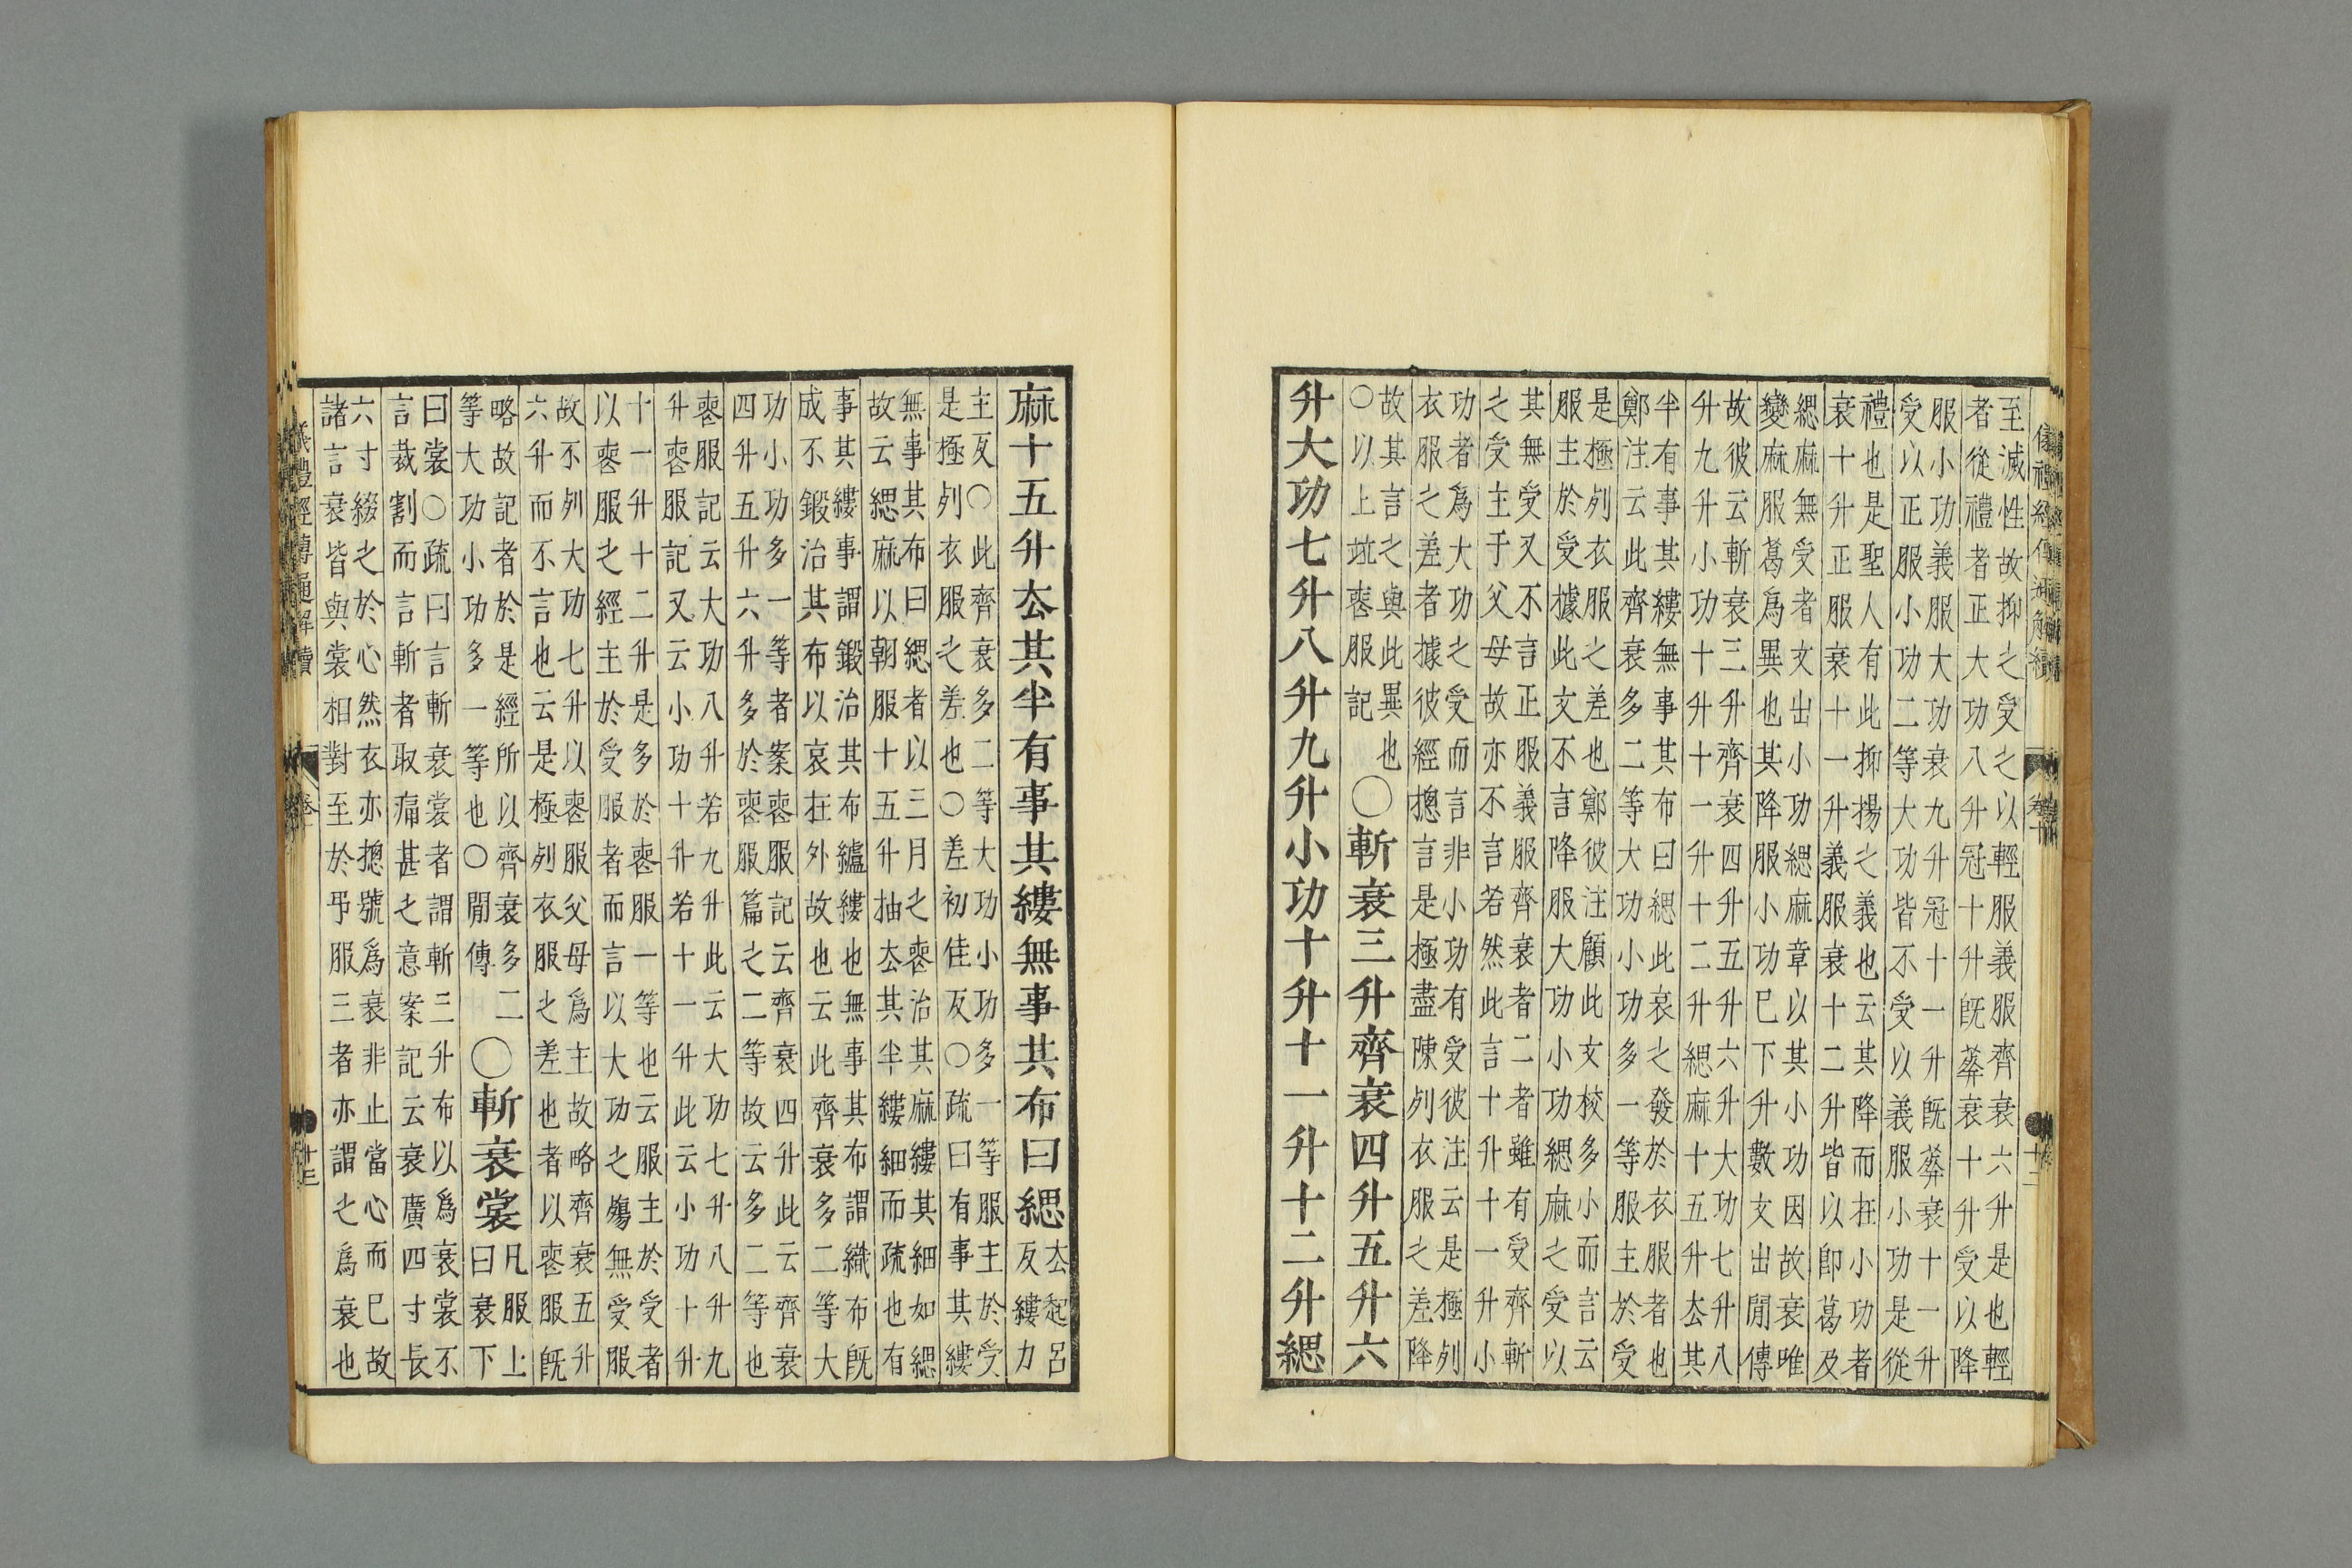 至滅性故抑之受之以輕服義服齊衰六升是也輕
者從禮者正大功八升冠十升旣葬衰十升受以降
服小功義服大功衰九升冠十一升旣葬衰十一升
受以正服小功二等大功皆不受以義服小功是從
禮也是聖人有此抑揚之義也云其降而在小功者
衰十升正服衰十一升義服衰十二升皆以即葛及
緦麻無受者文出小功緦麻章以其小功因故衰唯
變麻服葛爲異也其降服小功已下升數文出閒傳
故彼云斬衰三升齊衰四升五升六升大功七升八
升九升小功十升十一升十二升緦麻十五升厺其
半有事其縷無事其布曰緦此哀之發於衣服者也
鄭注云此齊衰多二等大功小功多一等服主於受
是極列衣服之差也鄭彼注顧此文校多少而言云
服主於受據此文不言降服大功小功緦麻之受以
其無受又不言正服義服齊衰者二者雖有受齊斬
之受主于父母故亦不言若然此言十升十一升小
功者爲大功之受而言非小功有受彼注云是極列
衣服之差者據彼經摠言是極盡陳列衣服之差降
故其言之與此異也
○以上竝喪服記
○斬衰三升齊衰四升五升六
升大功七升八升九升小功十升十一升十二升緦
麻十五升厺其半有事其縷無事其布曰緦
厺起呂
反縷力
主反○此齊衰多二等大功小功多一等服主於受
是極列衣服之差也○差初佳反○疏曰有事其縷
無事其布曰緦者以三月之喪治其麻縷其細如緦
故云緦麻以朝服十五升抽厺其半縷細而疏也有
事其縷事謂鍛治其布纑縷也無事其布謂織布旣
成不鍛治其布以哀在外故也云此齊衰多二等大
功小功多一等者案喪服記云齊衰四升此云齊衰
四升五升六升多於喪服篇之二等故云多二等也
喪服記云大功八升若九升此云大功七升八升九
升喪服記又云小功十升若十一升此云小功十升
十一升十二升是多於喪服一等也云服主於受者
以喪服之經主於受服者而言以大功之殤無受服
故不列大功七升以喪服父母爲主故略齊衰五升
六升而不言也云是極列衣服之差也者以喪服旣
略故記者於是經所以齊衰多二
等大功小功多一等也○閒傳
○斬衰裳
凡服上
曰衰下
曰裳○疏曰言斬衰裳者謂斬三升布以爲衰裳不
言裁割而言斬者取痛甚之意案記云衰廣四寸長
六寸綴之於心然衣亦摠號爲衰非止當心而已故
諸言衰皆與裳相對至於弔服三者亦謂之爲衰也
儀禮經傳通解續
十三